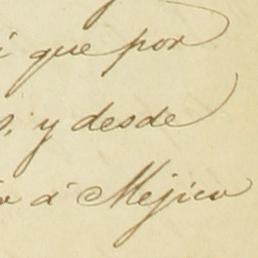 que por
y desde
á Méjico